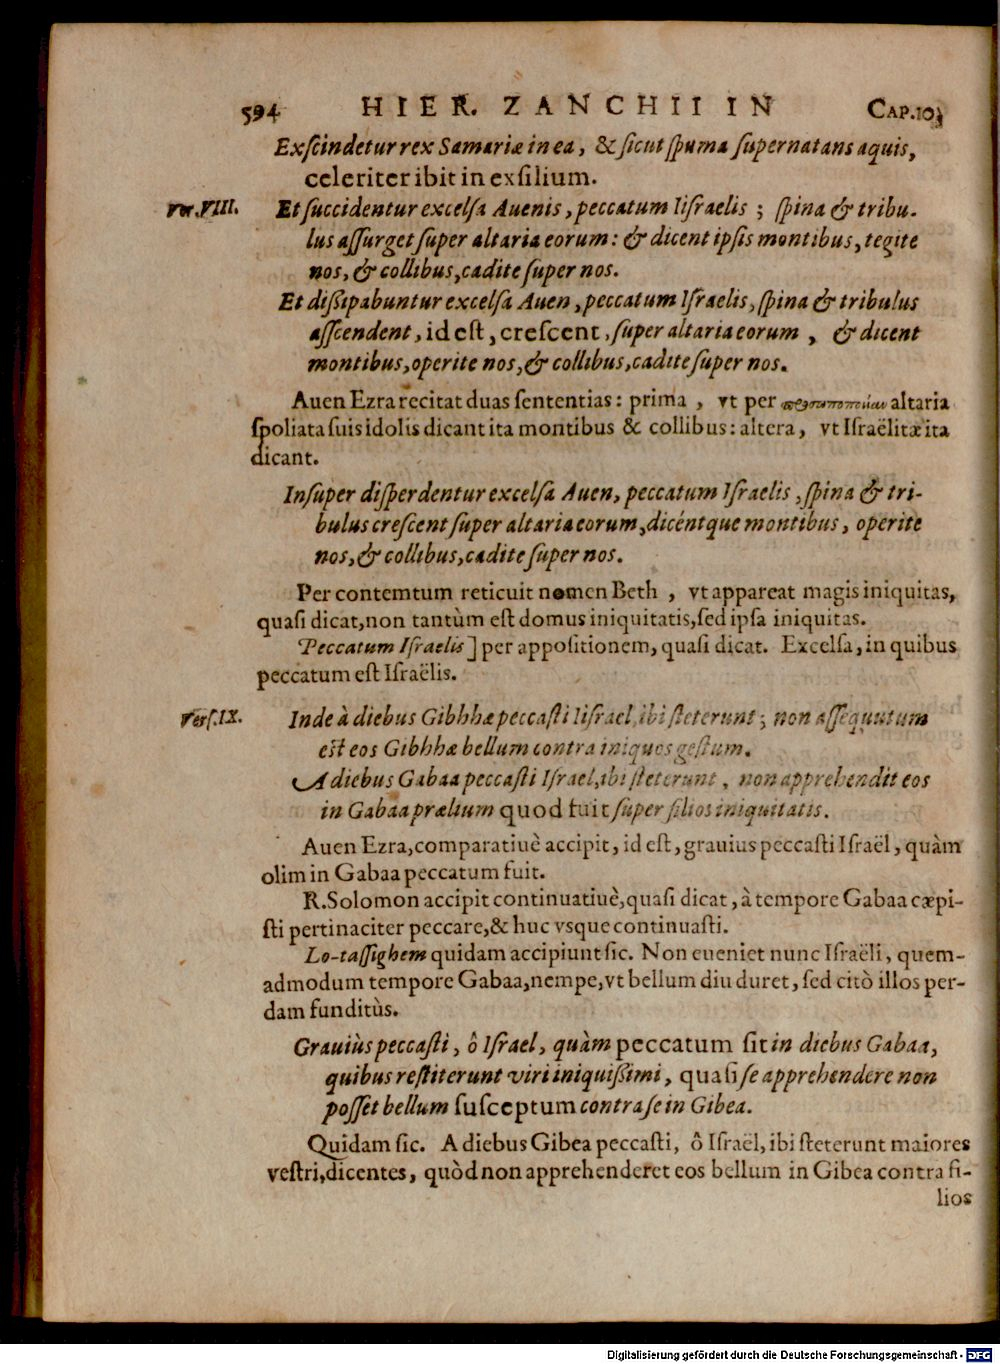 594 HIER. ZANCHII IN CAP.10.
Exſcindetur rex Samariæ in ea, & ſicut ſpuma ſupernatans aquis,
celeriter ibit in exſilium.
Ver. VIII. Et ſuccidentur excelſa Auenis, peccatum Iiſraelis ; ſpina & tribu-
lus aſſurget ſuper altaria eorum: & dicent ipſis montibus, tegite
nos, & collibus, cadite ſuper nos.
Et dißipabuntur excelſa Auen, peccatum Iſraelis, ſpina & tribulus
aſſcendent, id eſt, creſcent, ſuper altaria eorum, & dicent
montibus, operite nos, & collibus, cadite ſuper nos.
Auen Ezra recitat duas ſententias: prima, vt per altaria
ſpoliata ſuis idolis dicant ita montibus & collibus: altera, vt Iſraëlitæ ita
dicant.
Inſuper diſperdentur excelſa Auen, peccatum Iſraelis, ſpina & tri-
bulus creſcent ſuper altaria eorum, dicéntque montibus, operite
nos, & collibus, cadite ſuper nos.
Per contemtum reticuit nomen Beth, vt appareat magis iniquitas,
quaſi dicat, non tantùm eſt domus iniquitatis, ſed ipſa iniquitas.
Peccatum Iſraelis] per appoſitionem, quaſi dicat. Excelſa, in quibus
peccatum eſt Iſraëlis.
Verſ. IX. Inde à diebus Gibhhæ peccaſti Iiſrael, ibi ſteterunt; non aſſequutum
eſt eos Gibhhæ bellum contra iniquos geſtum.
A diebus Gabaa peccaſti Iſrael, ibi ſteterunt, non apprehendit eos
in Gabaa prælium quod fuit ſuper filios iniquitatis.
Auen Ezra, comparatiuè accipit, id eſt, grauius peccaſti Iſraël, quàm
olim in Gabaa peccatum fuit.
R. Solomon accipit continuatiuè, quaſi dicat, à tempore Gabaa cæpi-
ſti pertinaciter peccare, & huc vsque continuaſti.
Lo-taſſighem quidam accipiunt ſic. Non eueniet nunc Iſraëli, quem-
admodum tempore Gabaa, nempe, vt bellum diu duret, ſed citò illos per-
dam funditùs.
Grauiùs peccaſti, ô Iſrael, quàm peccatum ſit in diebus Gabaa,
quibus reſtiterunt viri iniquißimi, quaſi ſe apprehendere non
poſſet bellum ſusceptum contra ſe in Gibea.
Quidam ſic. A diebus Gibea peccaſti, ô Iſraël, ibi ſteterunt maiores
veſtri, dicentes, quòd non apprehenderet eos bellum in Gibea contra fi-
lios
Digitalisierung gefördert durch die Deutsche Forschungsgemeinschaft - DFG